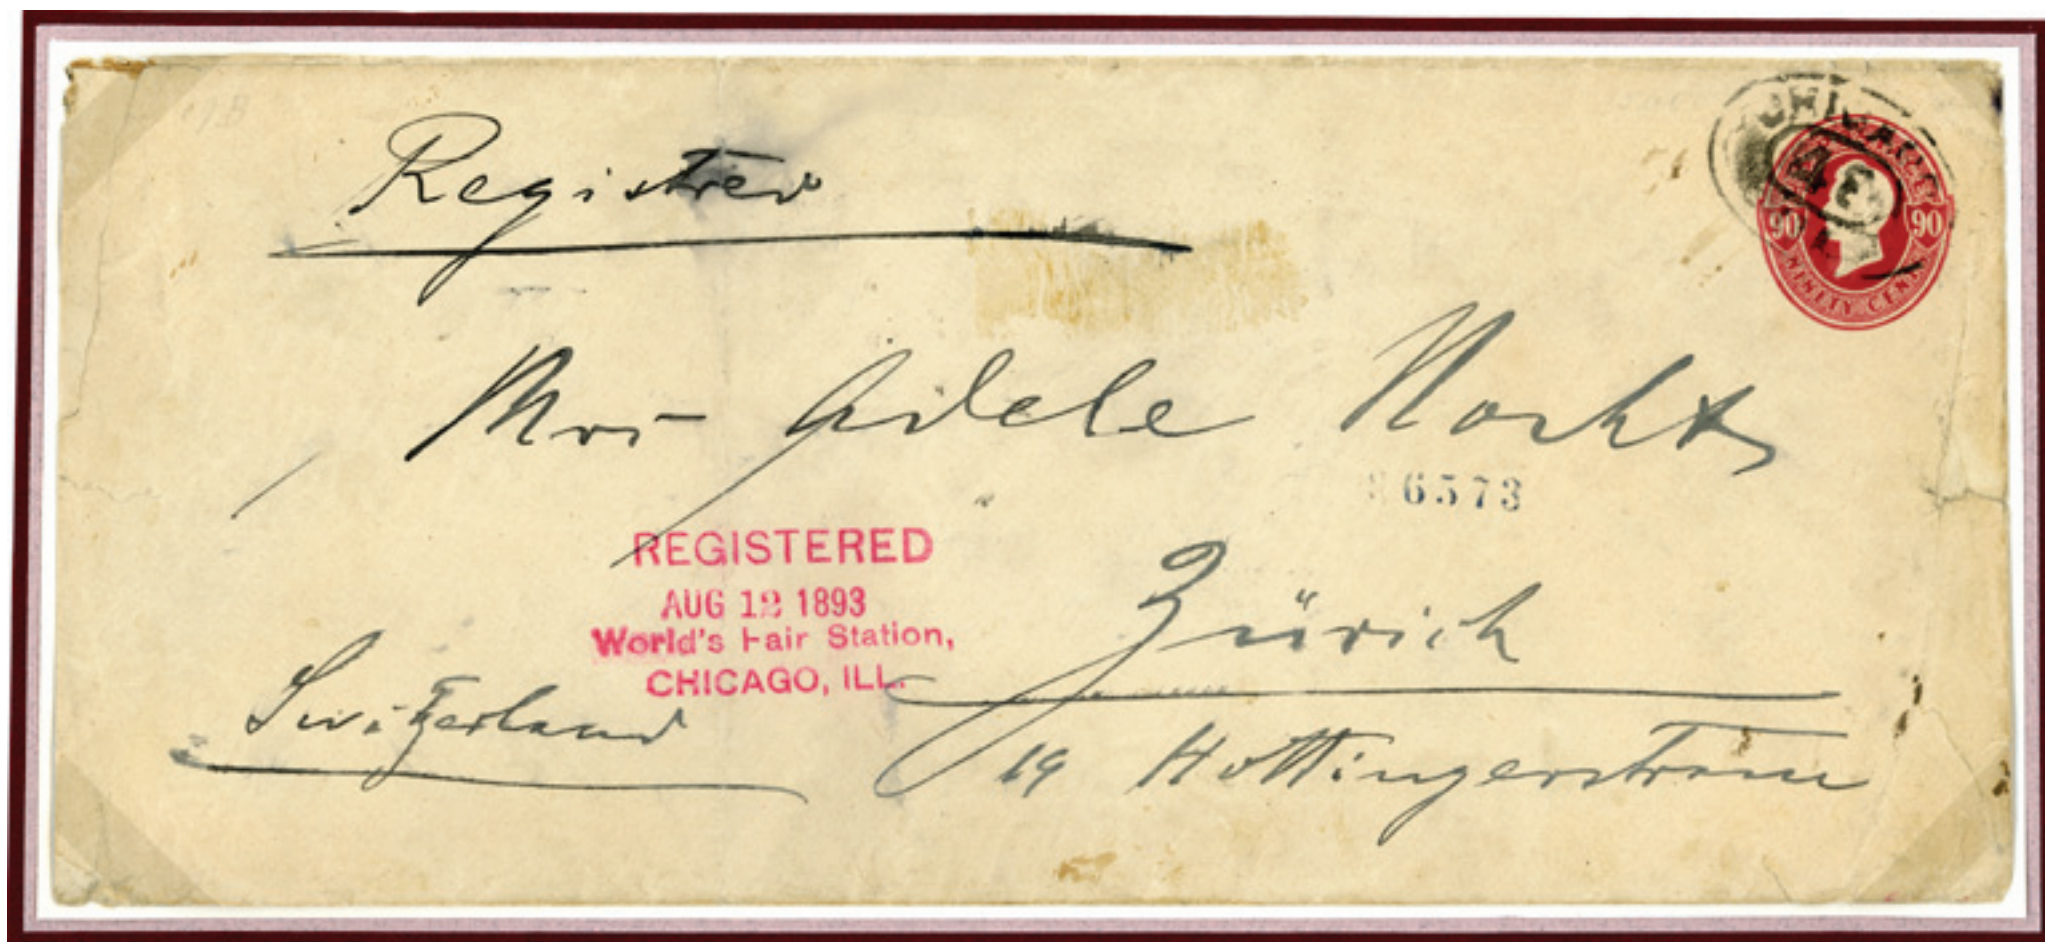 Registred
CHICAGO
90 90
NINETY CENTS
Mrs Adele Nacht
6573
REGISTERED
AUG 12 1893
World's Fair Station,
CHICAGO, ILL.
Zürich
Switzerland
19 Hottingerstrasse